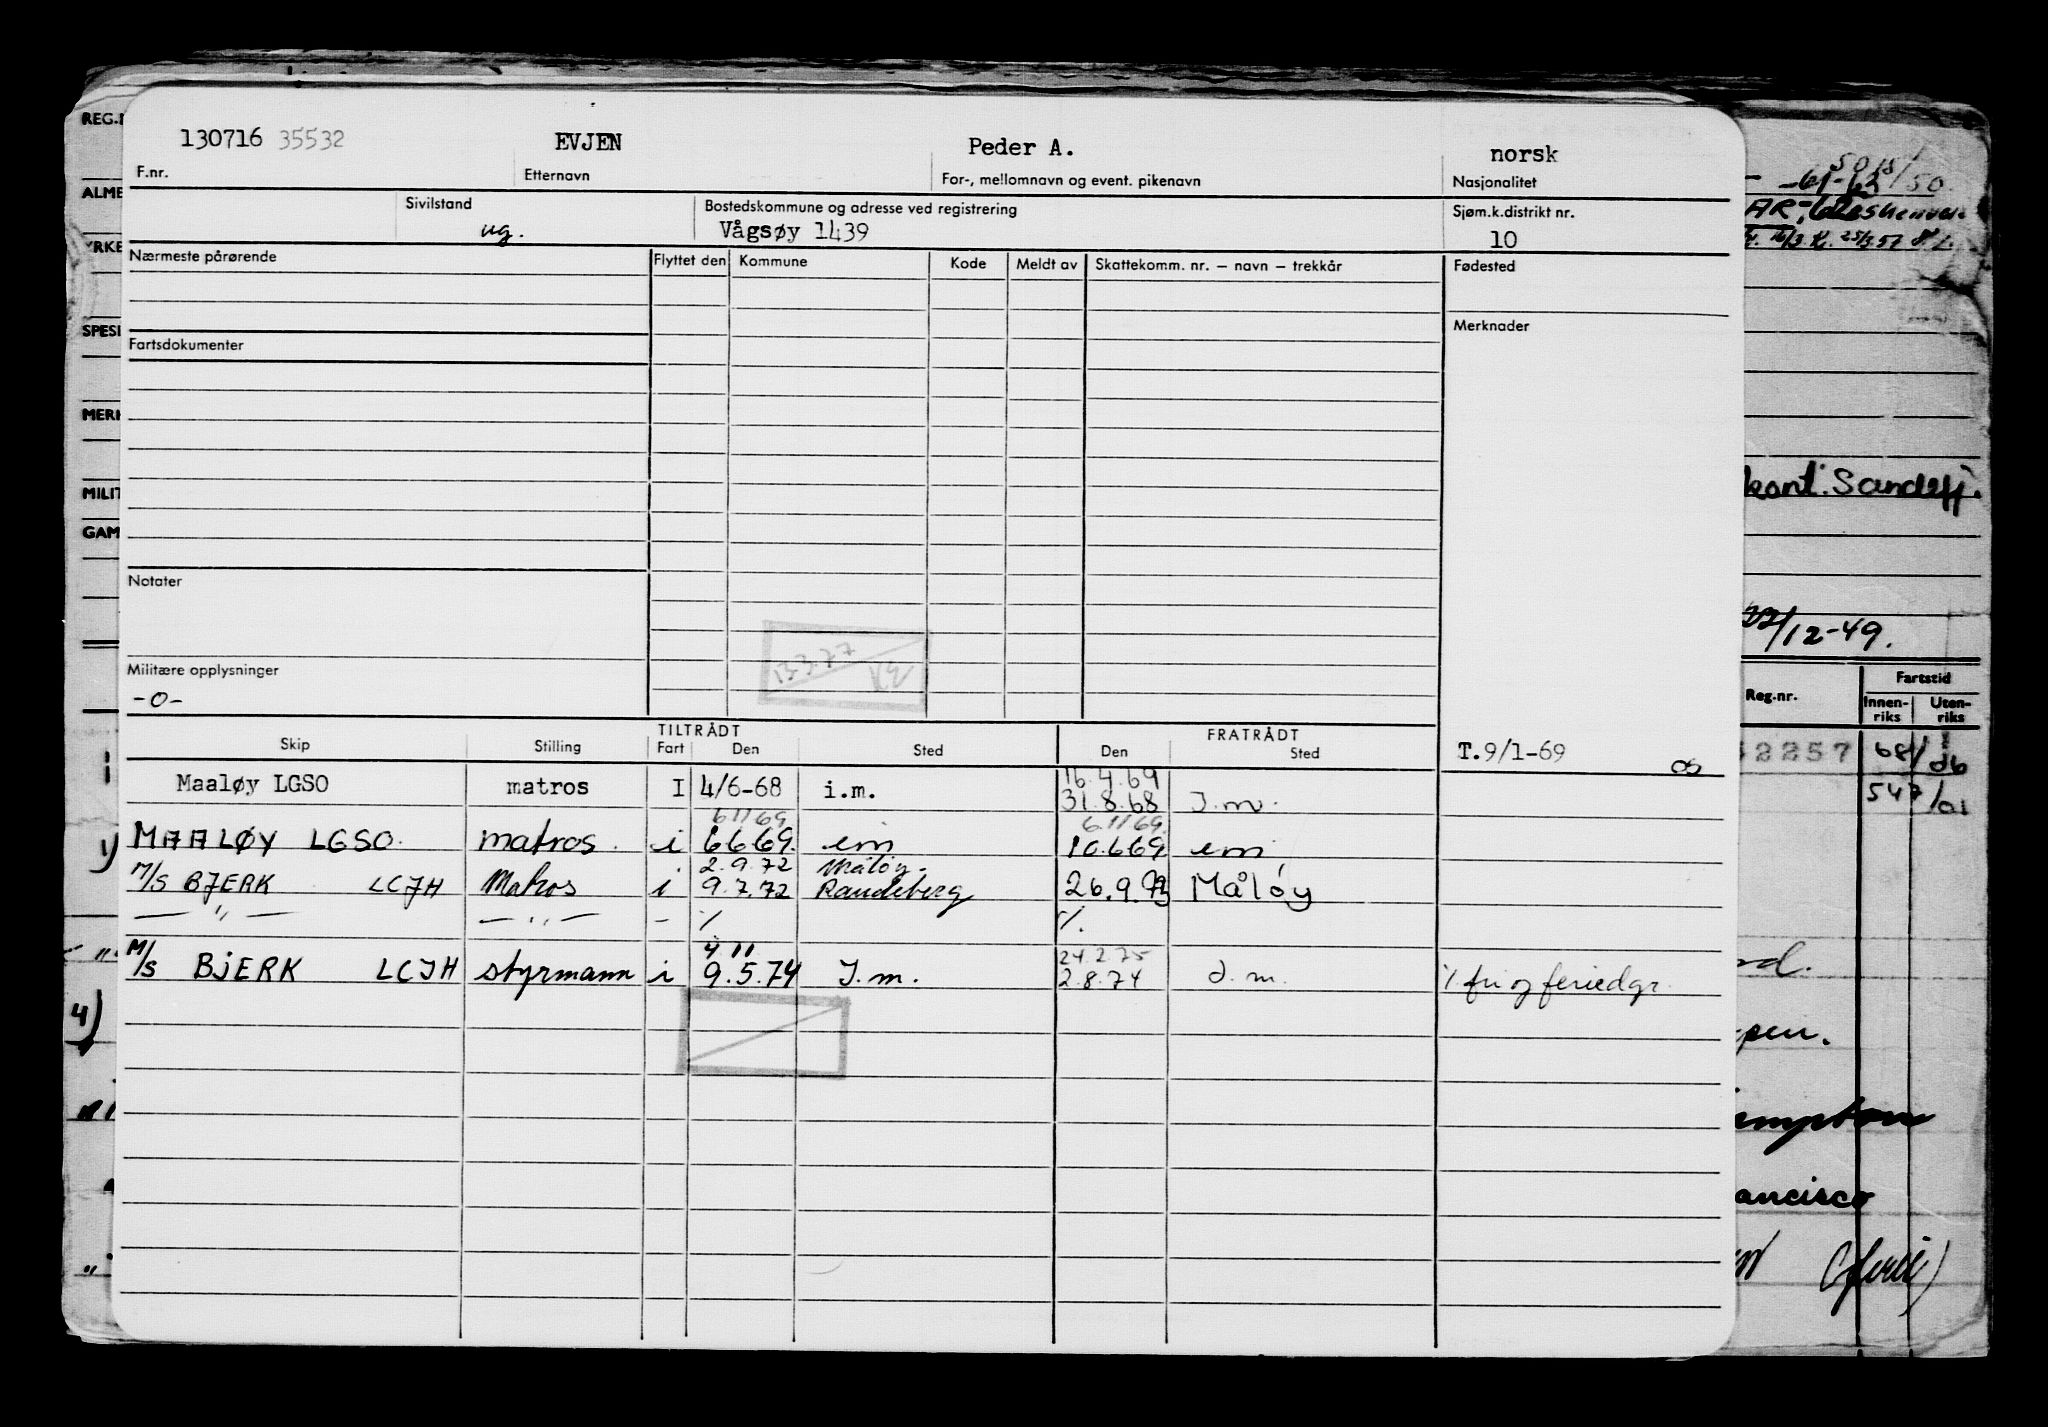 130716 35532 EVJEN Peder A. norsk
F.nr. Etternavn For-, mellomnavn og event. pikenavn Nasjonalitet
Sivilstand Bostedskommune og adresse ved registrering Sjøm.k.distrikt nr.
ug. Vågsøy 1439 10
Nærmeste pårørende Flyttet den Kommune Kode Meldt av Skattekomm. nr. — navn — trekkår Fødested
Merknader
Fartsdokumenter
Notater
13.3.77
Militære opplysninger
-o-
TILTRÅDT FRATRÅDT
Skip Stilling Fart Den Sted Den Sted T.9/1-69 OS
16.4.69
Maaløy LGSO matros I 4/6-68 i.m. 31.8.68 I.m.
6.11.69 6.11.69.
MAALØY LGSO. matros. i 6669. im 10.669 im
2.9.72 Måløy.
M/S BJERK LCJH Matros i 9.7.72 Raudeberg 26.9.73 MÅLØY
— " — — " — - % %
4.11 24.2.75
M/S BJERK LCJH styrmann i 9.5.74 I.m. 2.8.74 I.m. % fri og feriedgr.
REG.
ALME
YRKE
SPESI
MERK
MILIT
GAM
4)
-61-63
kont. Sandefj.
22/12-49.
Reg.nr. Fartstid
Innen-riks Uten-riks
2257 68/06
547/01
ancisco